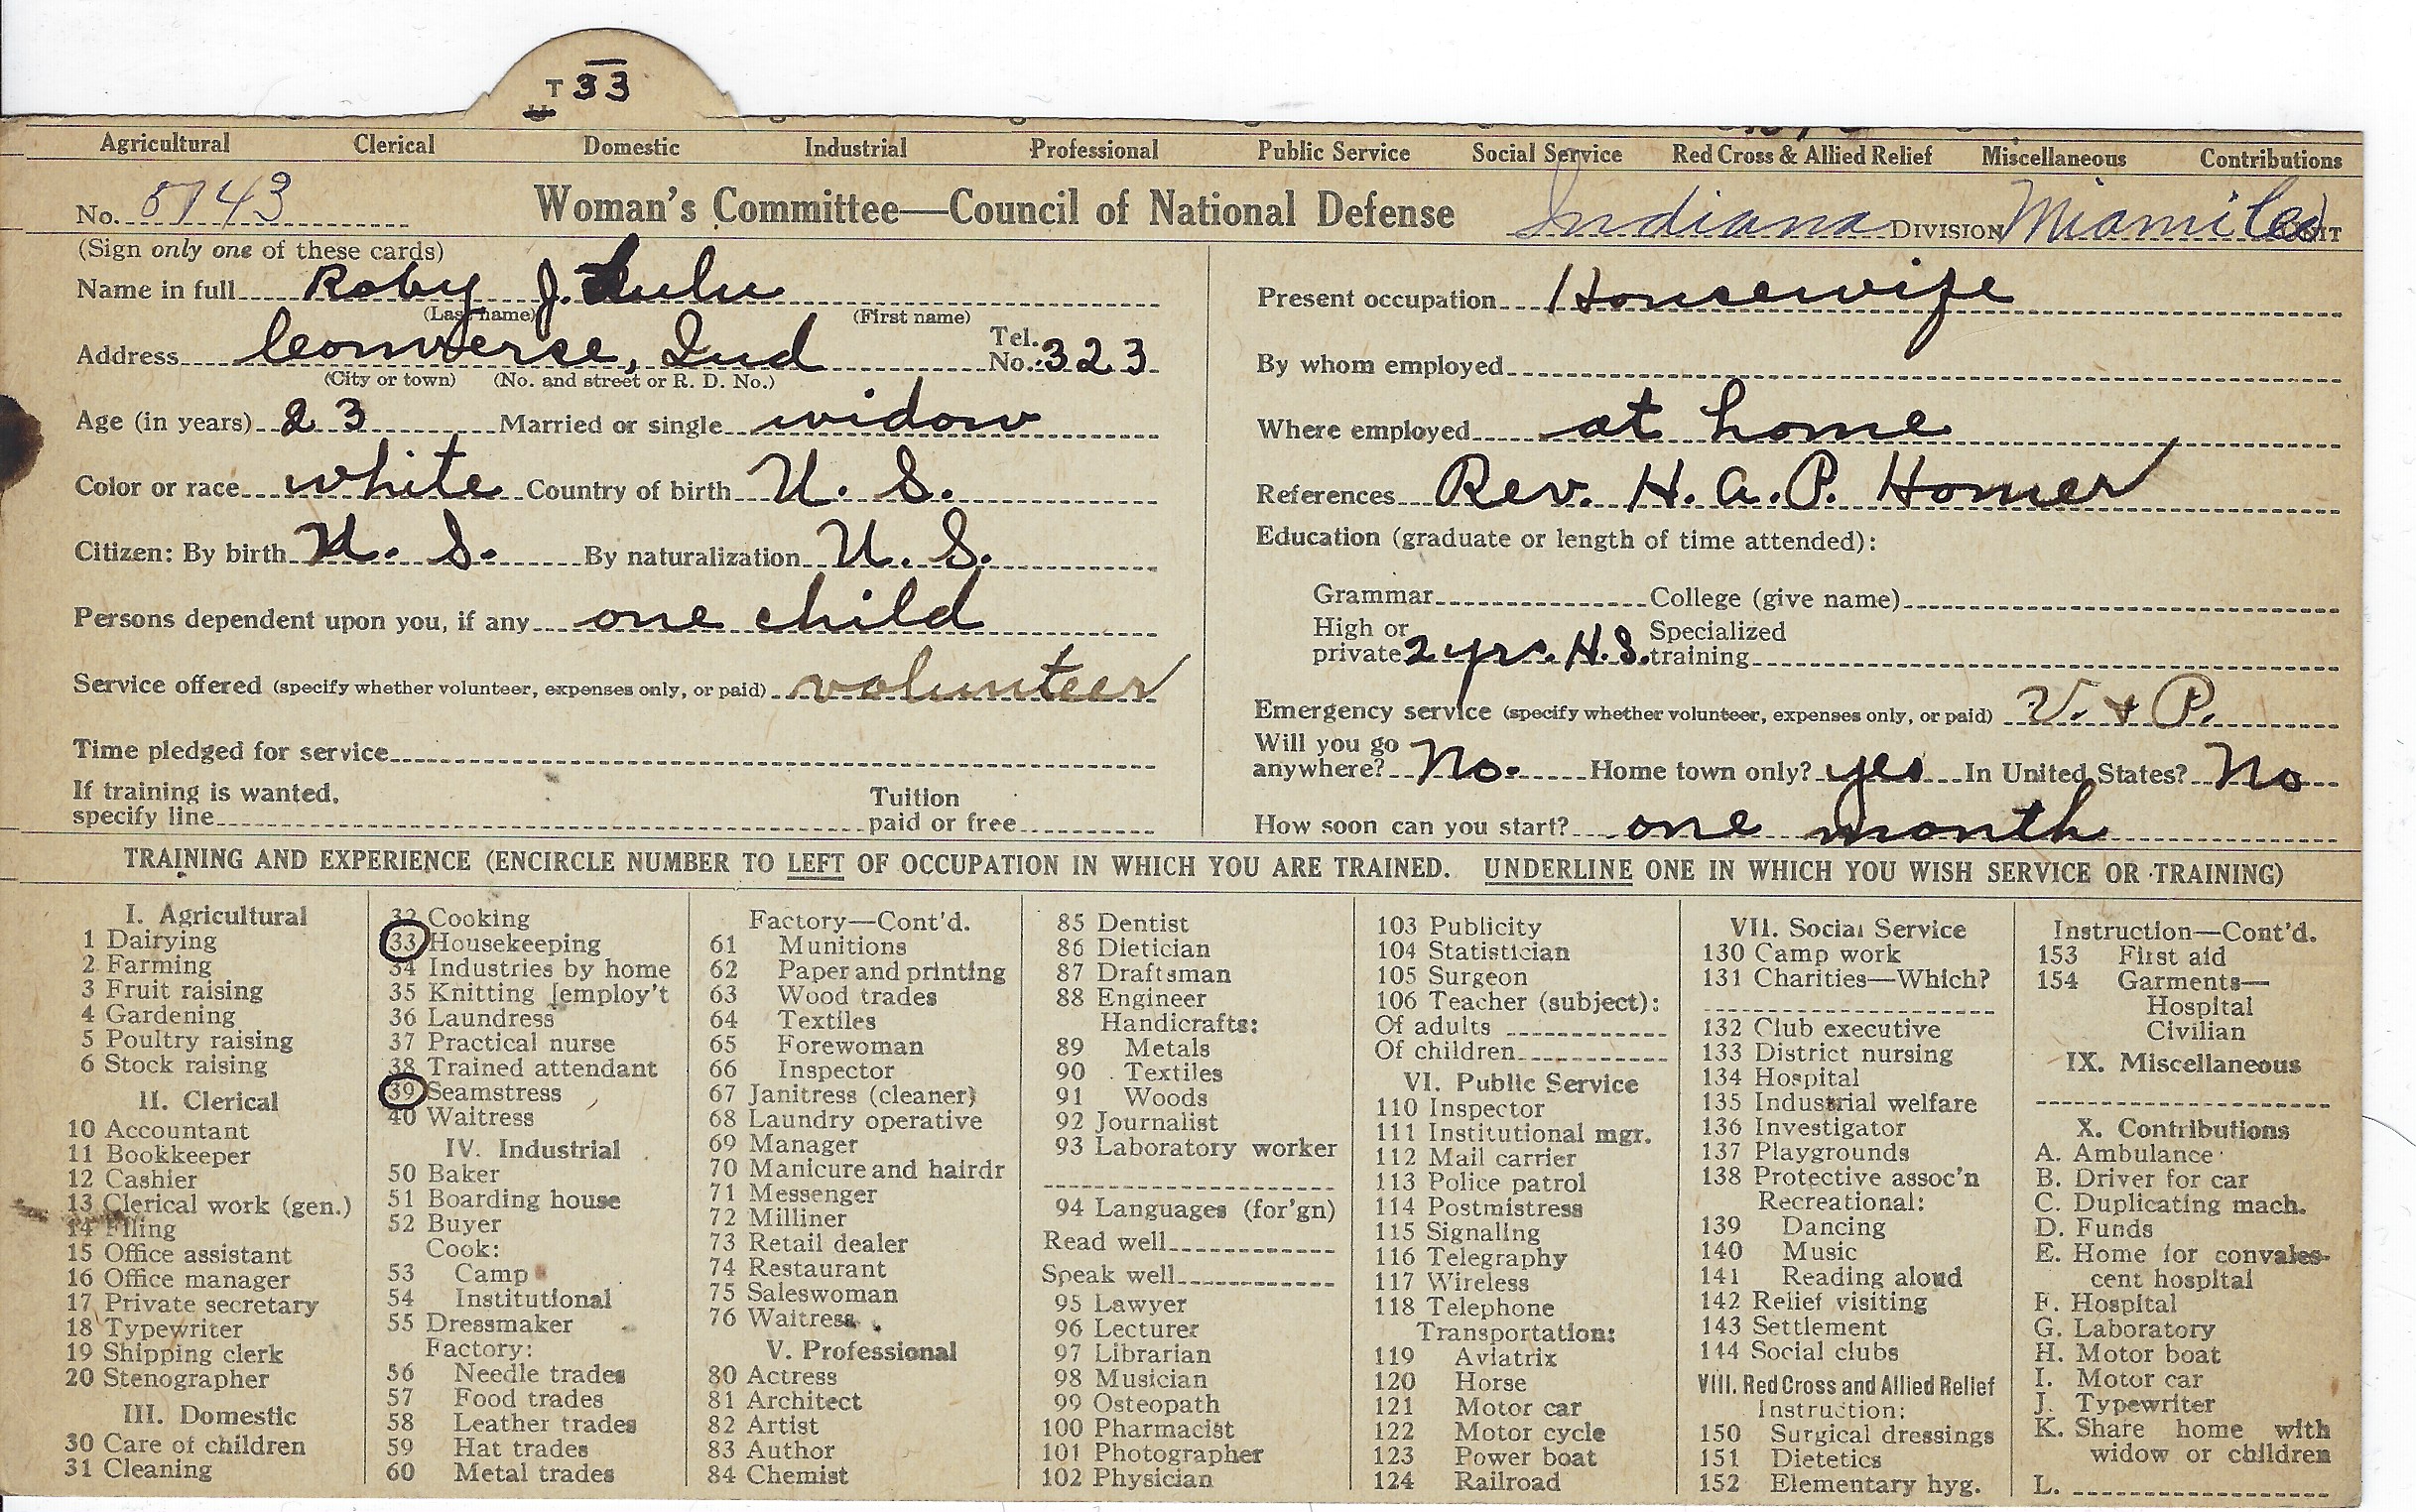 T 33
Agricultural Clerical Domestic Industrial Professional Public Service Social Service Red Cross & Allied Relief Miscellaneous Contributions
No. 5743 Woman's Committee—Council of National Defense Indiana DIVISION Miami Co UNIT
(Sign only one of these cards)
Name in full Roby J. Lulu
(Last name) (First name)
Address Converse, Ind Tel. No. 323
(City or town) (No. and street or R. D. No.)
Age (in years) 23 Married or single widow
Color or race white Country of birth U. S.
Citizen: By birth U. S. By naturalization U. S.
Persons dependent upon you, if any one child
Service offered (specify whether volunteer, expenses only, or paid) volunteer
Time pledged for service
If training is wanted, specify line Tuition paid or free
Present occupation Housewife
By whom employed
Where employed at home
References Rev. H. A. P. Homer
Education (graduate or length of time attended):
Grammar College (give name)
High or private 2 yrs. H.S. Specialized training
Emergency service (specify whether volunteer, expenses only, or paid) V. & P.
Will you go anywhere? No. Home town only? yes In United States? No
How soon can you start? one month
TRAINING AND EXPERIENCE (ENCIRCLE NUMBER TO LEFT OF OCCUPATION IN WHICH YOU ARE TRAINED. UNDERLINE ONE IN WHICH YOU WISH SERVICE OR TRAINING)
I. Agricultural
1 Dairying
2 Farming
3 Fruit raising
4 Gardening
5 Poultry raising
6 Stock raising
II. Clerical
10 Accountant
11 Bookkeeper
12 Cashier
13 Clerical work (gen.)
14 Filing
15 Office assistant
16 Office manager
17 Private secretary
18 Typewriter
19 Shipping clerk
20 Stenographer
III. Domestic
30 Care of children
31 Cleaning
32 Cooking
33 Housekeeping
34 Industries by home
35 Knitting [employ't
36 Laundress
37 Practical nurse
38 Trained attendant
39 Seamstress
40 Waitress
IV. Industrial
50 Baker
51 Boarding house
52 Buyer
Cook:
53 Camp
54 Institutional
55 Dressmaker
Factory:
56 Needle trades
57 Food trades
58 Leather trades
59 Hat trades
60 Metal trades
Factory—Cont'd.
61 Munitions
62 Paper and printing
63 Wood trades
64 Textiles
65 Forewoman
66 Inspector
67 Janitress (cleaner)
68 Laundry operative
69 Manager
70 Manicure and hairdr
71 Messenger
72 Milliner
73 Retail dealer
74 Restaurant
75 Saleswoman
76 Waitress
V. Professional
80 Actress
81 Architect
82 Artist
83 Author
84 Chemist
85 Dentist
86 Dietician
87 Draftsman
88 Engineer
Handicrafts:
89 Metals
90 Textiles
91 Woods
92 Journalist
93 Laboratory worker
94 Languages (for'gn)
Read well
Speak well
95 Lawyer
96 Lecturer
97 Librarian
98 Musician
99 Osteopath
100 Pharmacist
101 Photographer
102 Physician
103 Publicity
104 Statistician
105 Surgeon
106 Teacher (subject):
Of adults
Of children
VI. Public Service
110 Inspector
111 Institutional mgr.
112 Mail carrier
113 Police patrol
114 Postmistress
115 Signaling
116 Telegraphy
117 Wireless
118 Telephone
Transportation:
119 Aviatrix
120 Horse
121 Motor car
122 Motor cycle
123 Power boat
124 Railroad
VII. Social Service
130 Camp work
131 Charities—Which?
132 Club executive
133 District nursing
134 Hospital
135 Industrial welfare
136 Investigator
137 Playgrounds
138 Protective assoc'n
Recreational:
139 Dancing
140 Music
141 Reading aloud
142 Relief visiting
143 Settlement
144 Social clubs
VIII. Red Cross and Allied Relief
Instruction:
150 Surgical dressings
151 Dietetics
152 Elementary hyg.
Instruction—Cont'd.
153 First aid
154 Garments—
Hospital
Civilian
IX. Miscellaneous
X. Contributions
A. Ambulance
B. Driver for car
C. Duplicating mach.
D. Funds
E. Home for convales-
cent hospital
F. Hospital
G. Laboratory
H. Motor boat
I. Motor car
J. Typewriter
K. Share home with
widow or children
L.